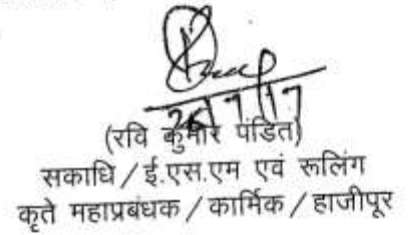 26/7/17
(रवि कुमार पंडित)
सकाधि / ई.एस.एम एवं रूलिंग
कृते महाप्रबंधक / कार्मिक / हाजीपूर